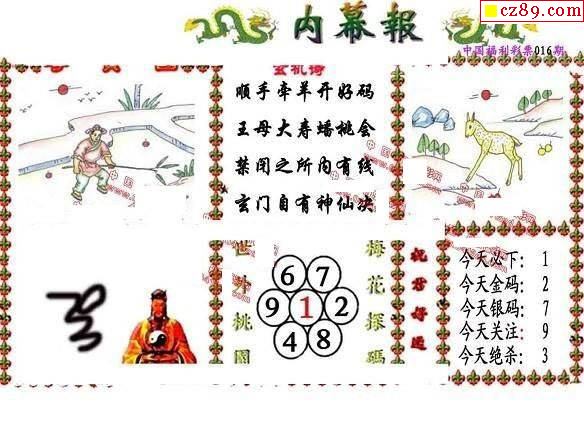 cz89.com
内幕報
中国福利彩票016期
玄机诗
顺手牵羊开好码
王母大寿蟠桃会
禁闭之所内有线
玄门自有神仙决
世外桃園
6 7
9 1 2
4 8
梅花探碼
祝君好运
今天必下: 1
今天金码: 2
今天银码: 7
今天关注: 9
今天绝杀: 3